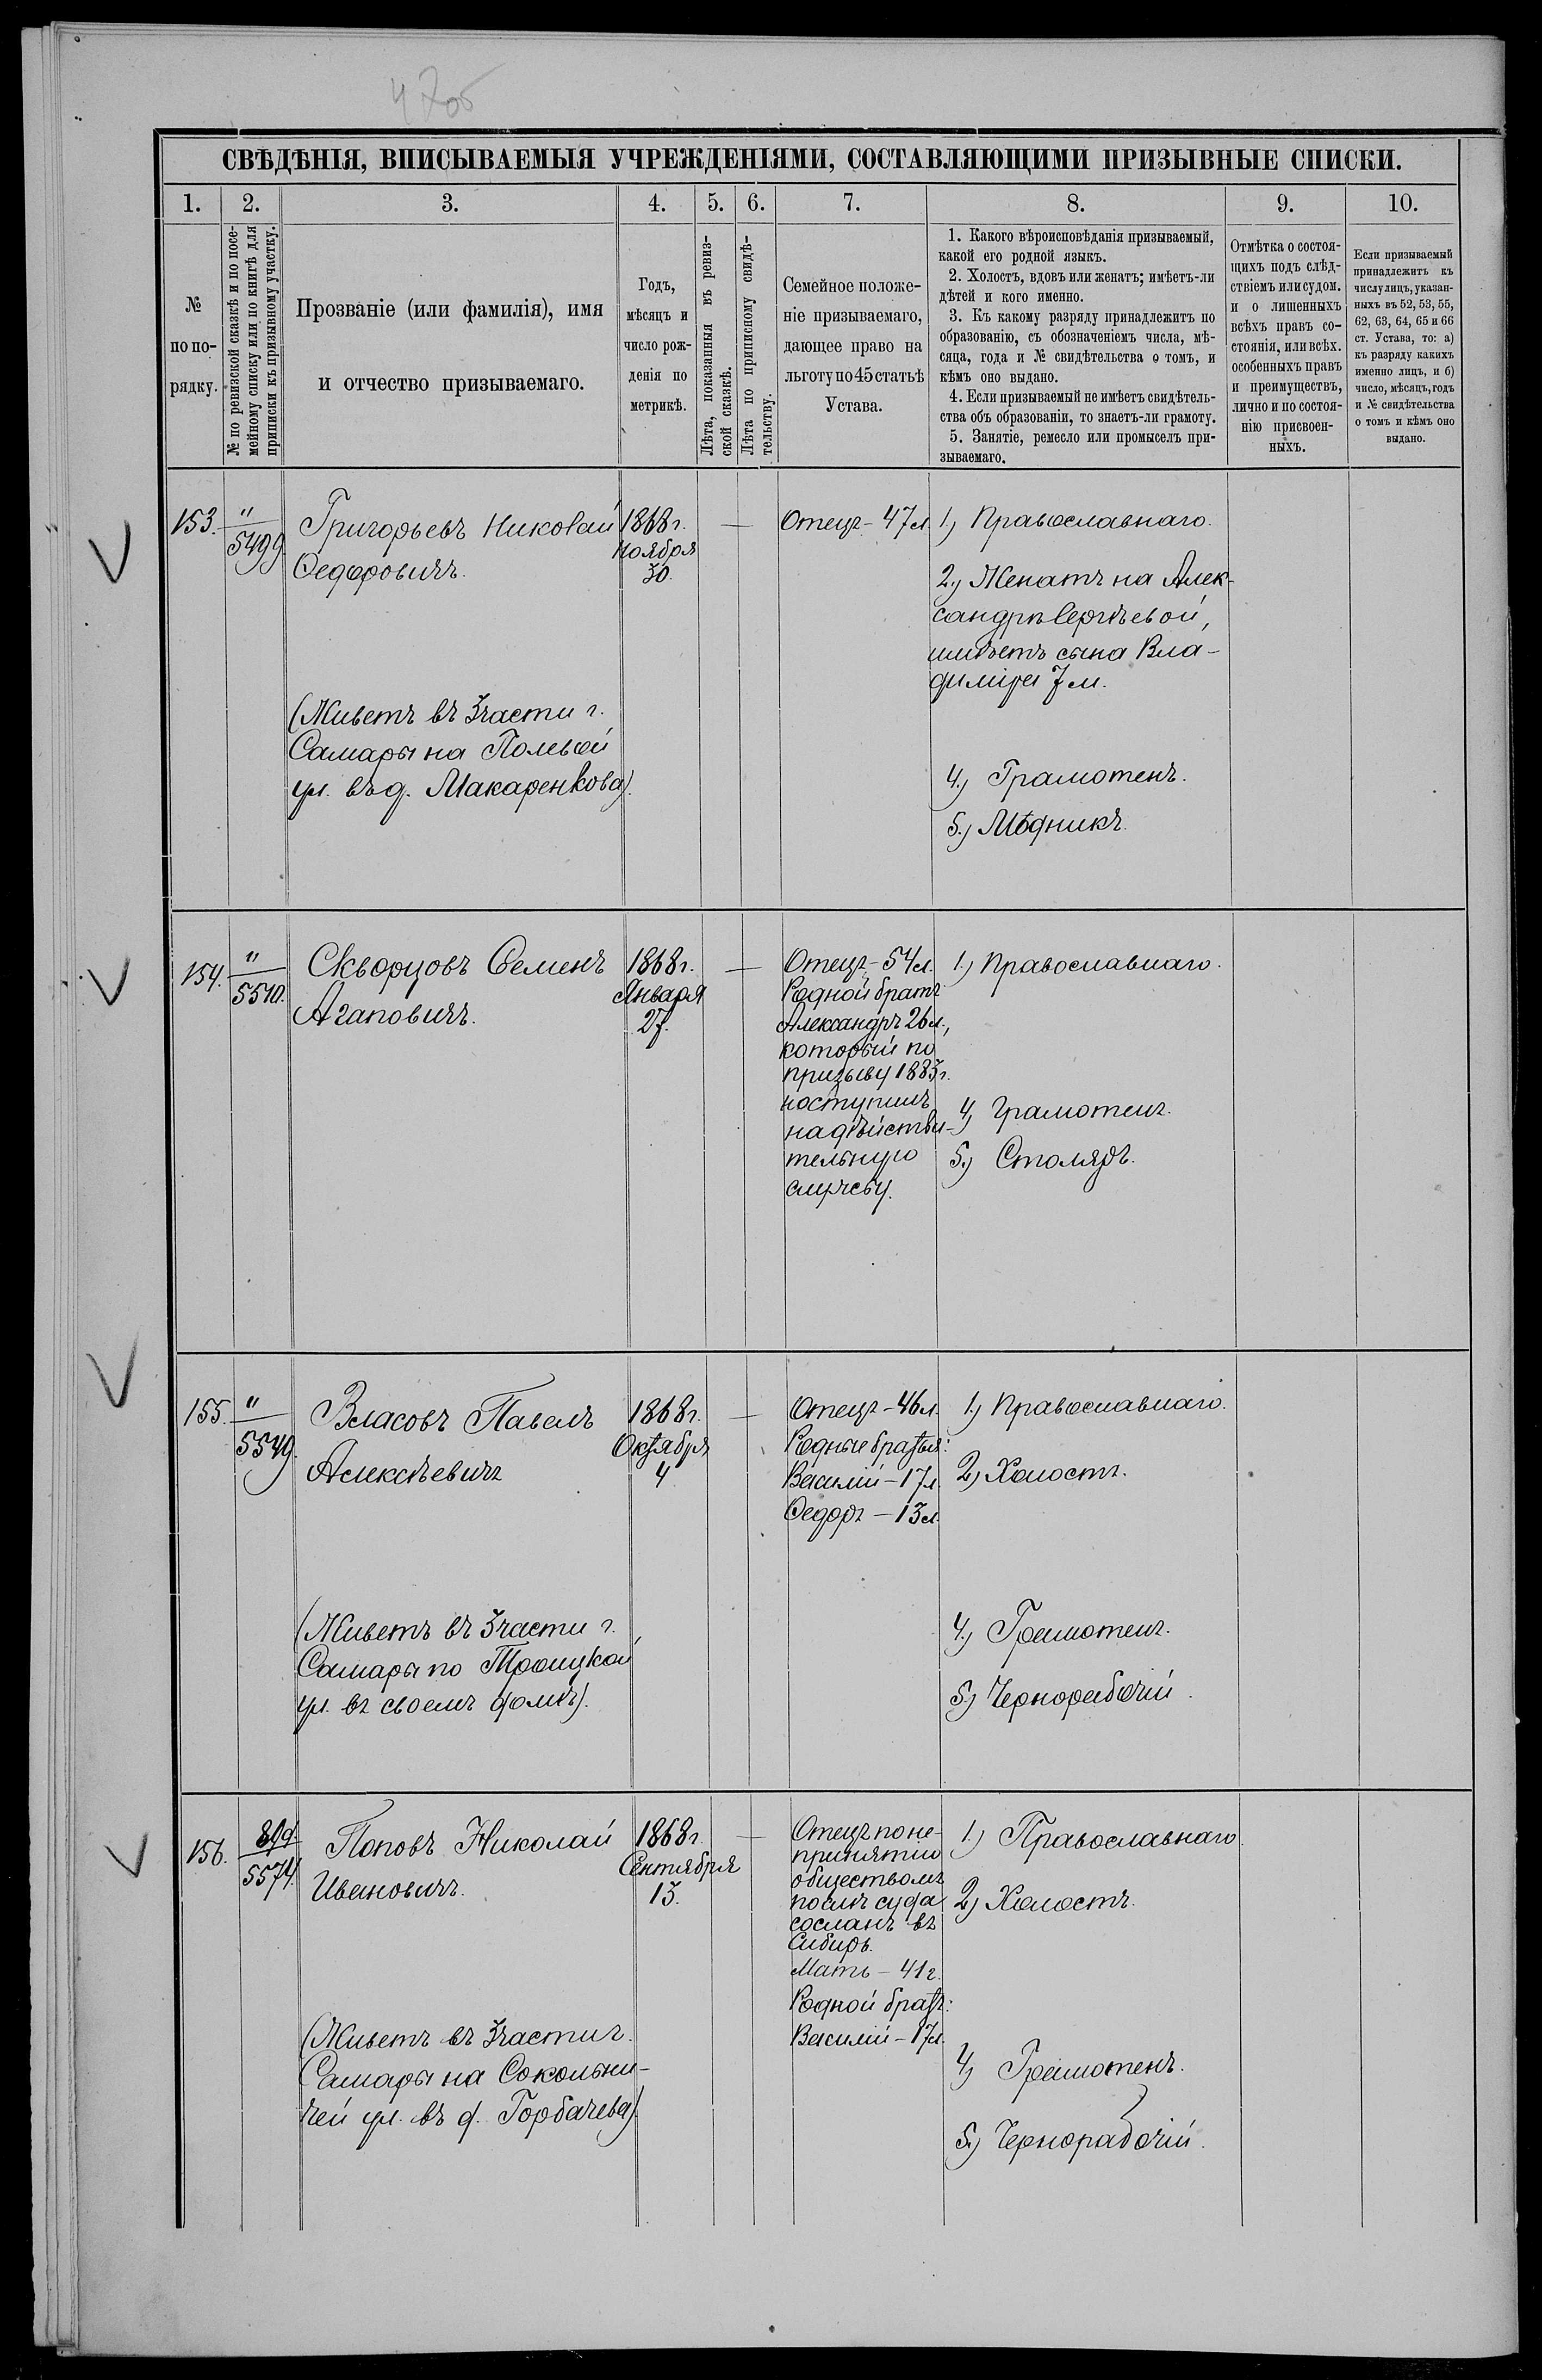 470б
СВѢДѢНІЯ, ВПИСЫВАЕМЫЯ УЧРЕЖДЕНІЯМИ, СОСТАВЛЯЮЩИМИ ПРИЗЫВНЫЕ СПИСКИ.
1. 2. 3. 4. 5. 6. 7. 8. 9. 10.
№
по по-
рядку.
№ по ревизской сказкѣ и по посе-
мейному списку или по книгѣ для
приписки къ призывному участку.
Прозваніе (или фамилія), имя
и отчество призываемаго.
Годъ,
мѣсяцъ и
число рож-
денія по
метрикѣ.
Лѣта, показанныя въ ревиз-
ской сказкѣ.
Лѣта по приписному свидѣ-
тельству.
Семейное положе-
ніе призываемаго,
дающее право на
льготу по 45 статьѣ
Устава.
1. Какого вѣроисповѣданія призываемый,
какой его родной языкъ.
2. Холостъ, вдовъ или женатъ; имѣетъ-ли
дѣтей и кого именно.
3. Къ какому разряду принадлежитъ по
образованію, съ обозначеніемъ числа, мѣ-
сяца, года и № свидѣтельства о томъ, и
кѣмъ оно выдано.
4. Если призываемый не имѣетъ свидѣтель-
ства объ образованіи, то знаетъ-ли грамоту.
5. Занятіе, ремесло или промыселъ при-
зываемаго.
Отмѣтка о состоя-
щихъ подъ слѣд-
ствіемъ или судом.
и о лишенныхъ
всѣхъ правъ со-
стоянія, или всѣх.
особенныхъ правъ
и преимуществъ,
лично и по состоя-
нію присвоен-
ныхъ.
Если призываемый
принадлежитъ къ
числу лицъ, указан-
ныхъ въ 52, 53, 55,
62, 63, 64, 65 и 66
ст. Устава, то: а)
къ разряду какихъ
именно лицъ, и б)
число, мѣсяцъ, годъ
и № свидѣтельства
о томъ и кѣмъ оно
выдано.
153.
"
5499.
Григорьевъ Николай
Федоровичъ.
(Живетъ въ 3 части г.
Самары на Полевой
ул. въ д. Макаренкова).
1868 г.
Ноября
30.
—
Отецъ - 47 л.
1.) Православнаго.
2.) Женатъ на Алек-
сандрѣ Сергѣевой,
имѣетъ сына Вла-
диміра 7 м.
4.) Грамотенъ.
5.) Мѣдникъ.
154.
"
5510.
Скворцовъ Семенъ
Агаповичъ.
1868 г.
Января
27.
—
Отецъ - 54 л.
Родной братъ
Александръ 26 л.,
который по
призыву 1883 г.
поступилъ
на дѣйстви-
тельную
службу.
1.) Православнаго.
4.) Грамотенъ.
5.) Столяръ.
155.
"
5549.
Власовъ Павелъ
Алексѣевичъ
(Живетъ въ 3 части г.
Самары по Троицкой
ул. въ своемъ домѣ).
1868 г.
Октября
4
—
Отецъ - 46 л.
Родные братья:
Василій - 17 л.
Федоръ - 13 л.
1.) Православнаго.
2.) Холостъ.
4.) Грамотенъ.
5.) Чернорабочій.
156.
5574.
Поповъ Николай
Ивановичъ.
(Живетъ въ 3 части г.
Самары на Сокольни-
чей ул. въ д. Горбачева).
1868 г.
Сентября
13.
—
Отецъ по не-
принятію
обществомъ
послѣ суда
сосланъ въ
Сибирь.
Мать - 41 г.
Родной братъ:
Василій - 17 л.
1.) Православнаго.
2.) Холостъ.
4.) Грамотенъ.
5.) Чернорабочій.